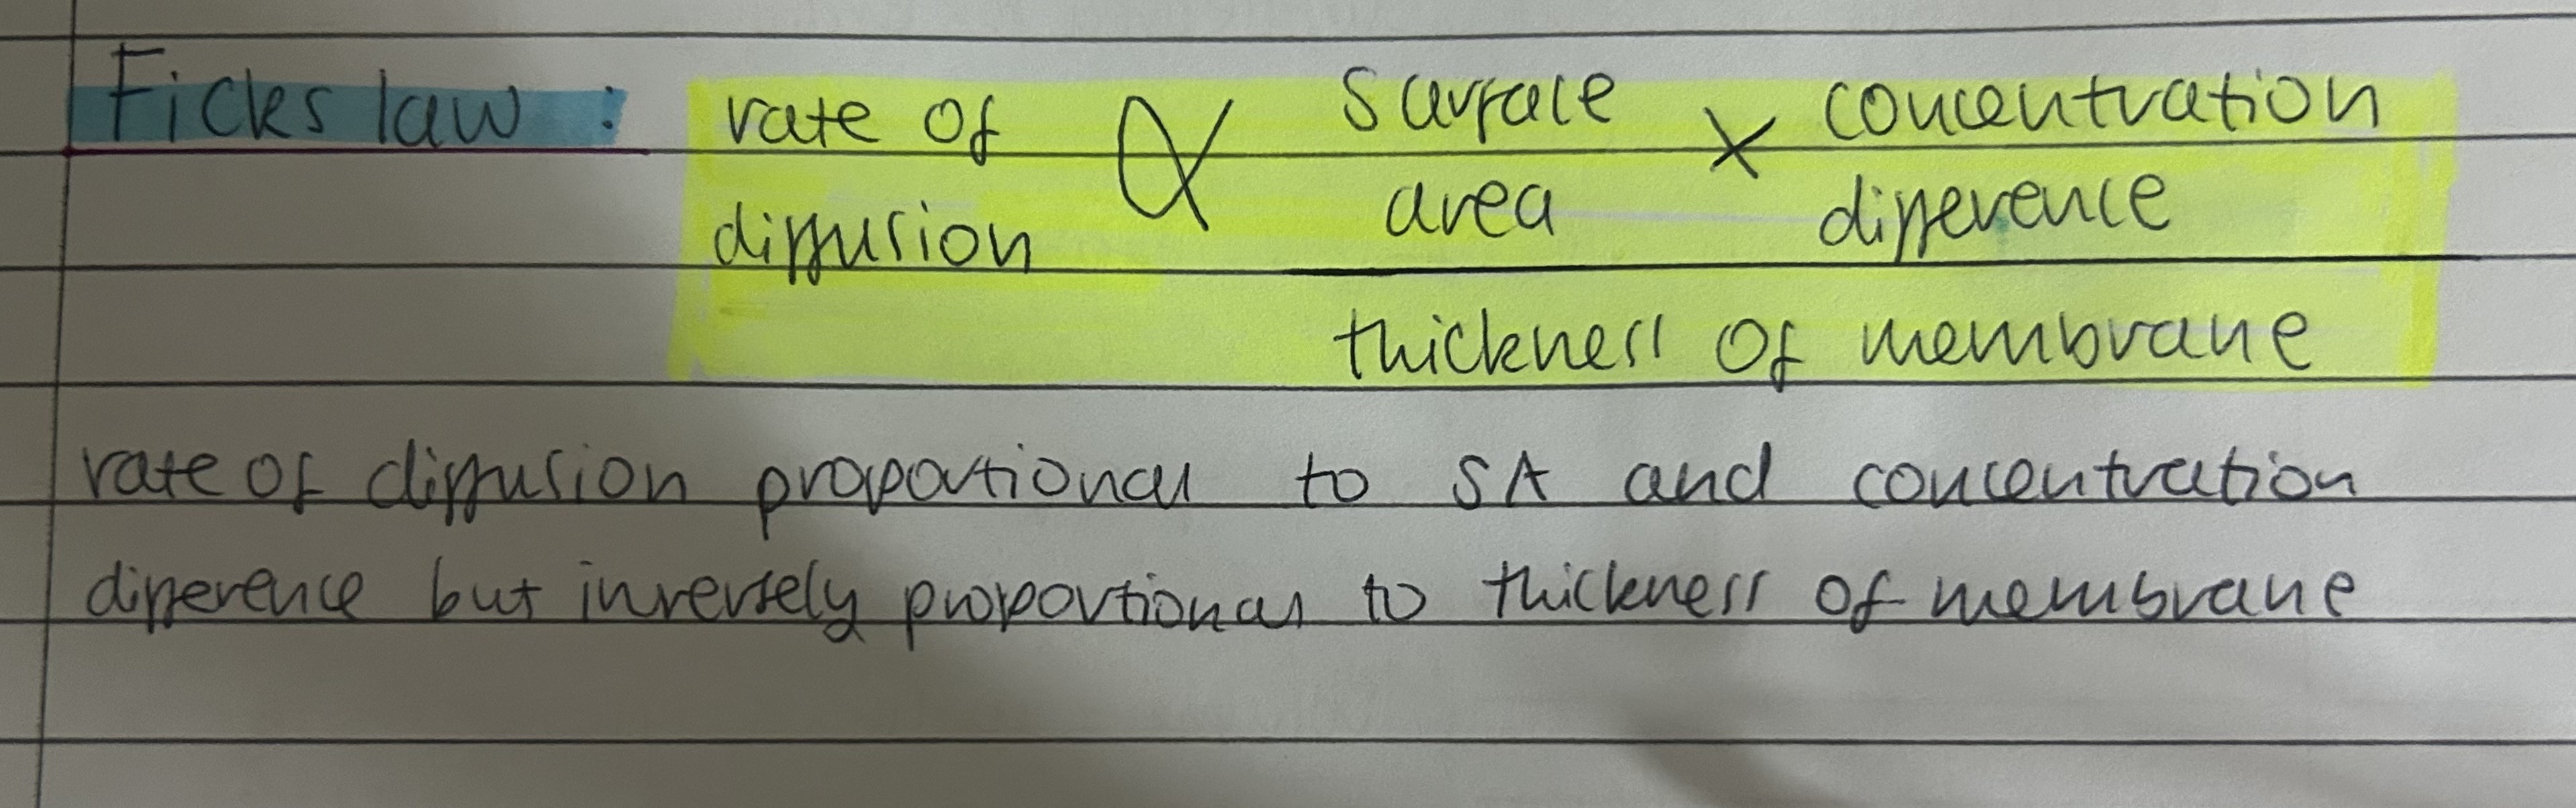 Ficks law : rate of diffusion ∝ surface area × concentration difference
thickness of membrane
rate of diffusion proportional to SA and concentration
difference but inversely proportional to thickness of membrane